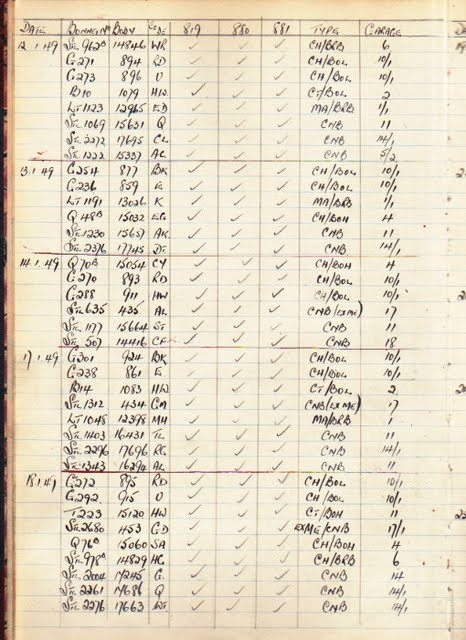 DATE BONNET No BODY CODE 819 880 881 TYPE GARAGE
12.1.49 STL 962B 14846 WR ✓ ✓ ✓ CH/BRB 6
G271 894 RD ✓ ✓ ✓ CH/BOL 10/1
G273 896 U ✓ ✓ ✓ CH/BOL 10/1
B10 1079 HW ✓ ✓ ✓ CT/BOL 2
LT1123 12965 ED ✓ ✓ ✓ MA/BRB 1/1
STL 1069 15631 Q ✓ ✓ ✓ CNB 11
STL 2272 17695 CL ✓ ✓ ✓ CNB 14/1
STL 1222 15337 AL ✓ ✓ ✓ CNB 5/2
13.1.49 G254 877 BK ✓ ✓ ✓ CH/BOL 10/1
G236 859 E ✓ ✓ ✓ CH/BOL 10/1
LT1191 13026 K ✓ ✓ ✓ MA/BRB 1/1
Q48B 15032 EG ✓ ✓ ✓ CH/BOH 4
STL 1230 15657 AK ✓ ✓ ✓ CNB 11
STL 2376 17745 ✓ ✓ ✓ CNB 14/1
14.1.49 Q70B 15054 CY ✓ ✓ ✓ CH/BOH 4
G270 893 RD ✓ ✓ ✓ CH/BOL 10/1
G288 911 HW ✓ ✓ ✓ CH/BOL 10/1
STL 635 435 AL ✓ ✓ ✓ CNB(EXME) 17
STL 1177 15664 ST ✓ ✓ ✓ CNB 11
STL 507 14416 CF ✓ ✓ ✓ CNB 18
17.1.49 G301 924 BK ✓ ✓ ✓ CH/BOL 10/1
G238 861 E ✓ ✓ ✓ CH/BOL 10/1
B14 1083 HW ✓ ✓ ✓ CT/BOL 2
STL 1312 434 GM ✓ ✓ ✓ CNB(EXME) 17
LT1048 12398 MH ✓ ✓ ✓ MA/BRB 1
STL 1403 16431 TL ✓ ✓ ✓ CNB 11
STL 2296 17696 RG ✓ ✓ ✓ CNB 14/1
STL 1343 16294 AL ✓ ✓ ✓ CNB 11
18.1.49 G272 895 RD ✓ ✓ ✓ CH/BOL 10/1
G292 915 U ✓ ✓ ✓ CH/BOL 10/1
T223 15120 HW ✓ ✓ ✓ CT/BOH 11
STL 2680 453 GD ✓ ✓ ✓ EXME/CNB 17/1
Q76B 15060 SA ✓ ✓ ✓ CH/BOH 4
STL 978B 14829 HC ✓ ✓ ✓ CH/BRB 6
STL 2004 17245 G ✓ ✓ ✓ CNB 14
STL 2261 17686 Q ✓ ✓ ✓ CNB 14/1
STL 2276 17663 ✓ ✓ ✓ CNB 14/1